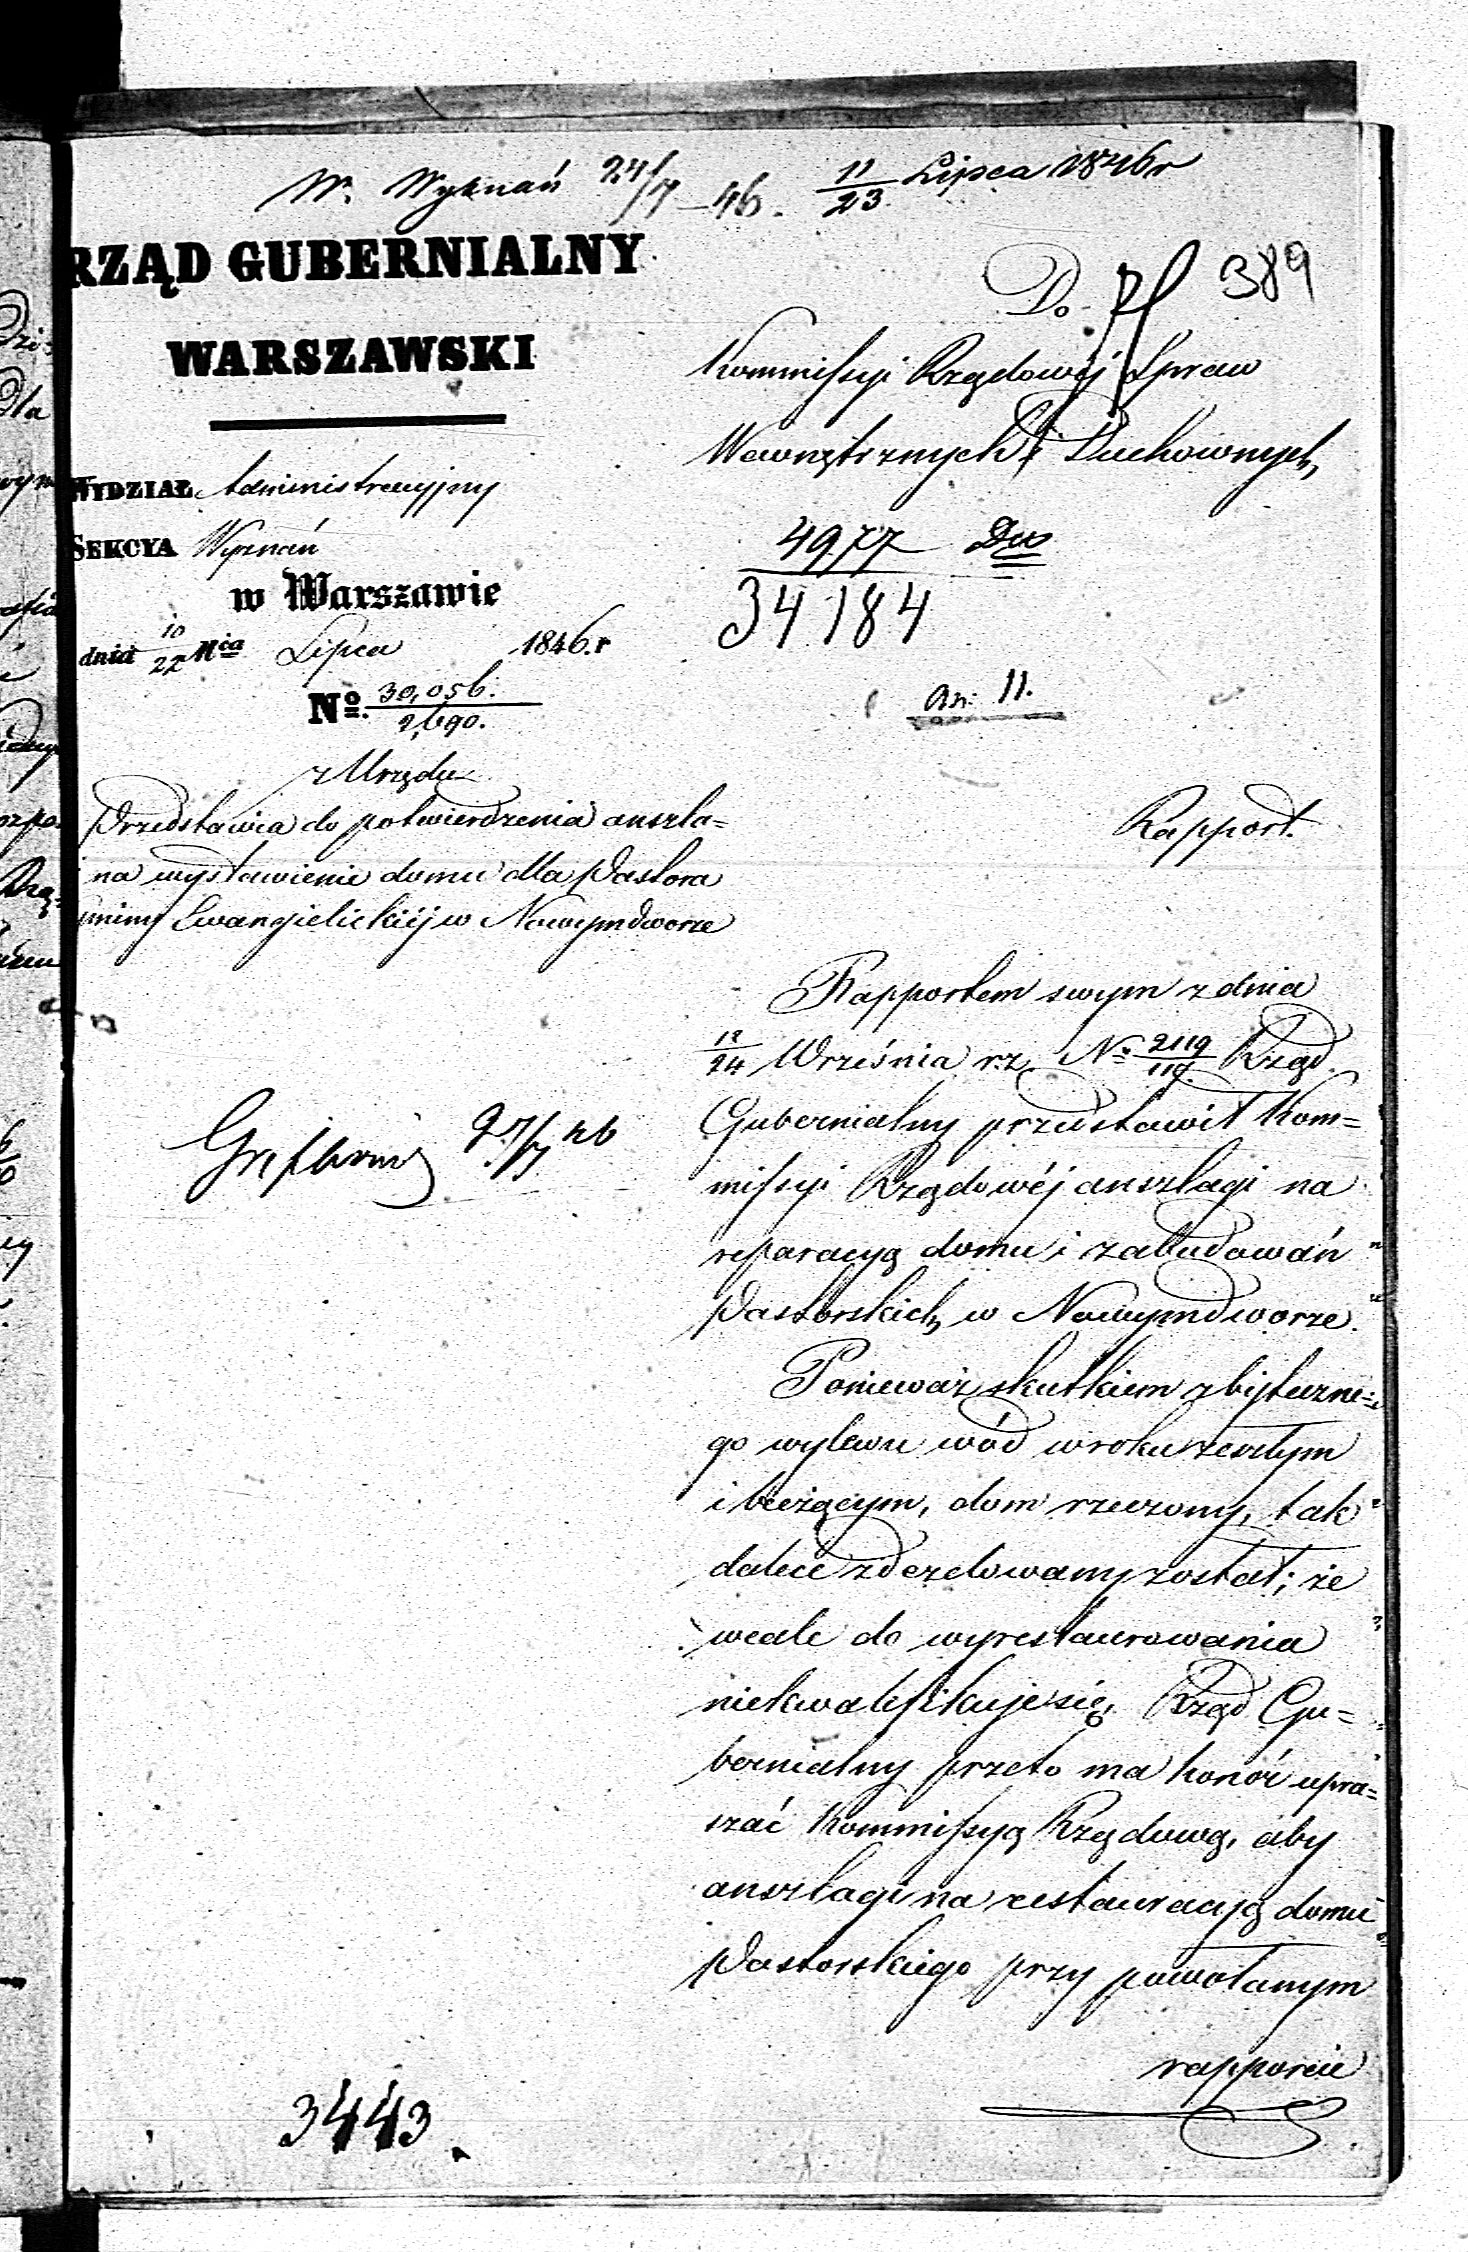 W. Wyznań 24/7 – 46. 11/23 Lipca 1846 r
RZĄD GUBERNIALNY
WARSZAWSKI
WYDZIAŁ Administracyjny
SEKCYA Wyznań
w Warszawie
dnia 10/22 Mca Lipca 1846. r
No. 30,056./2,690.
z Urzędu
Przedstawia do potwierdzenia anszla=
na wystawienie domu dla Pastora
Gminy Ewangielickiéj w Nowymdworze
27/7 46
3443
389
Do
Kommissyi Rządowéj Spraw
Wewnętrznych i Duchownych
4977 Duo
34184
an: 11.
Rapport.
Rapportem swym z dnia
12/24 Września r.z. No 2119/119. Rząd
Gubernialny przedstawił Kom=
missyi Rządowéj anszlagi na
reparacyą domu i zabudowań
Pastorskich w Nowymdworze.
Ponieważ skutkiem zbyteczne=
go wylewu wód w roku zeszłym
i bieżącym, dom rzeczony, tak
dalece zdezelowany został; że
wcale do wyrestaurowania
niekwalifikuje się, Rząd Gu=
bernialny przeto ma honor upra=
szać Kommissyą Rządową, aby
anszlagi na restauracyą domu
Pastorskiego przy powołanym
rapporcie